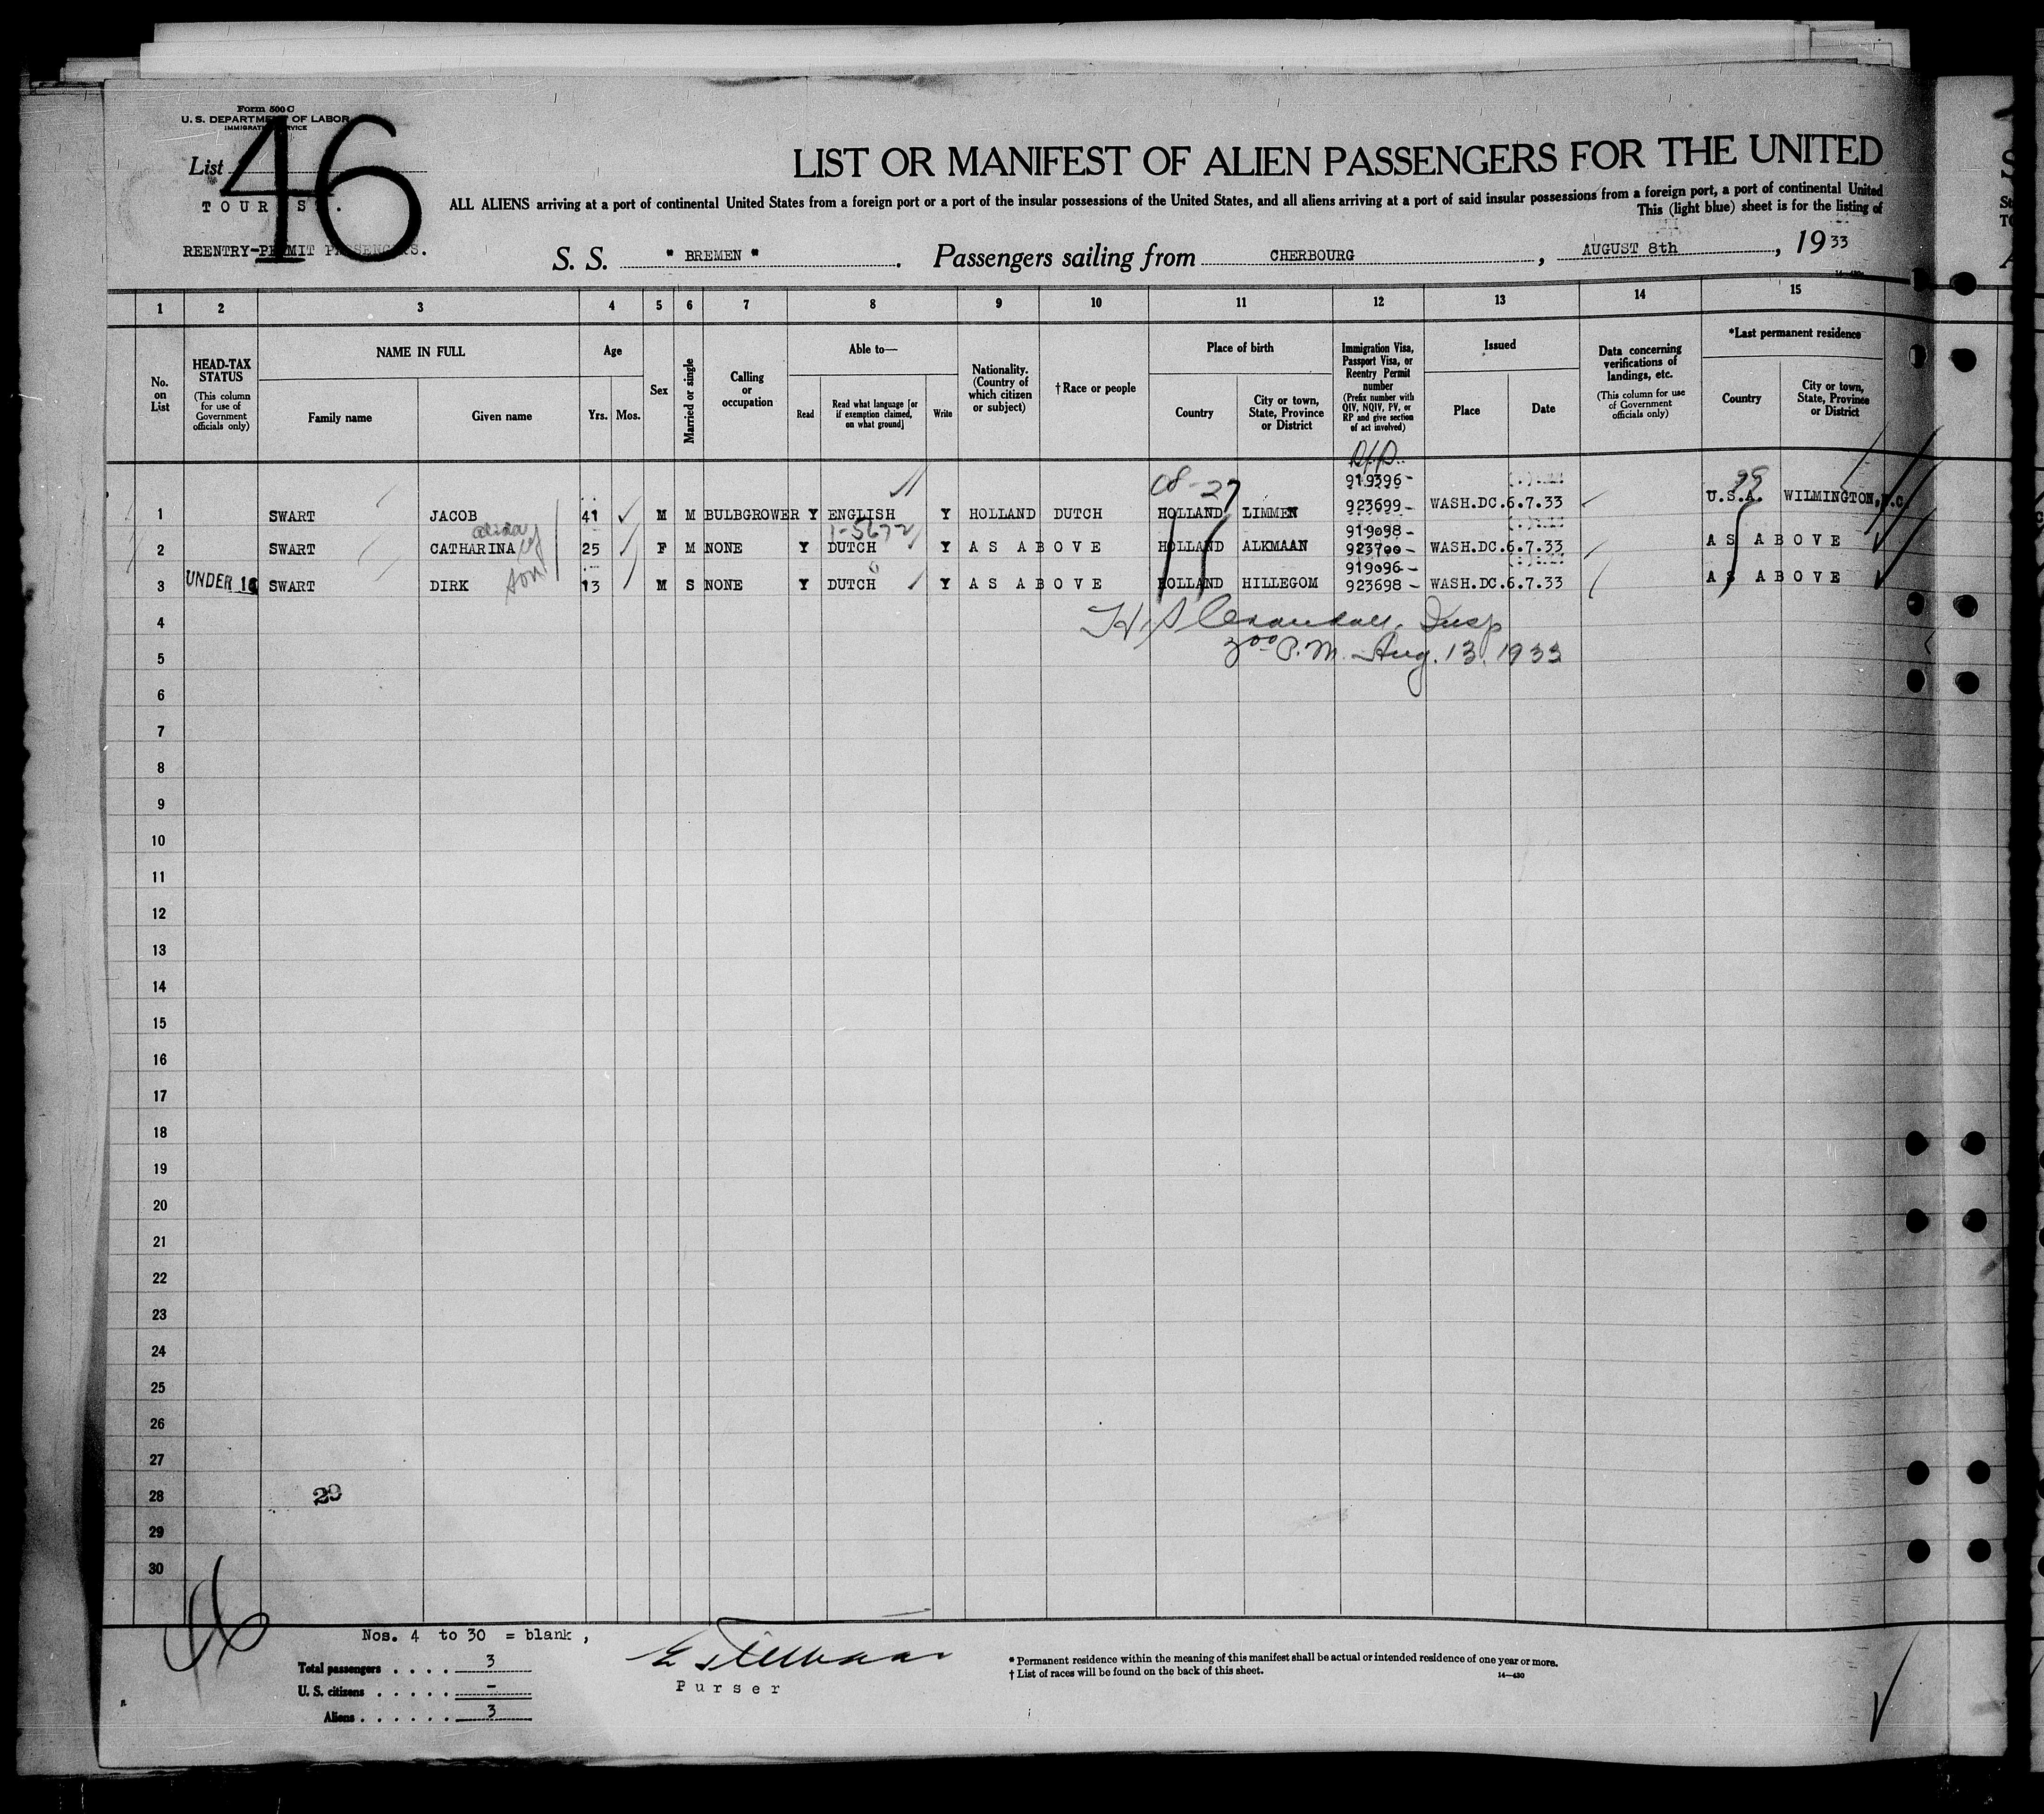 Form 500 C
U. S. DEPARTMENT OF LABOR
IMMIGRATION SERVICE
List 46
TOURIST.
REENTRY-PERMIT PASSENGERS.
LIST OR MANIFEST OF ALIEN PASSENGERS FOR THE UNITED
ALL ALIENS arriving at a port of continental United States from a foreign port or a port of the insular possessions of the United States, and all aliens arriving at a port of said insular possessions from a foreign port, a port of continental United
This (light blue) sheet is for the listing of
S. S. " BREMEN " . Passengers sailing from CHERBOURG , AUGUST 8th , 19 33
1 2 3 4 5 6 7 8 9 10 11 12 13 14 15
No. on List
HEAD-TAX STATUS (This column for use of Government officials only)
NAME IN FULL
Family name Given name
Age
Yrs. Mos.
Sex
Married or single
Calling or occupation
Able to—
Read
Read what language [or if exemption claimed, on what ground]
Write
Nationality. (Country of which citizen or subject)
†Race or people
Place of birth
Country
City or town, State, Province or District
Immigration Visa, Passport Visa, or Reentry Permit number (Prefix number with QIV, NQIV, PV, or RP and give section of act involved)
Issued
Place Date
Data concerning verifications of landings, etc. (This column for use of Government officials only)
*Last permanent residence
Country
City or town, State, Province or District
919396-
1 SWART JACOB 41 M M BULBGROWER Y ENGLISH Y HOLLAND DUTCH HOLLAND LIMMEN 923699- WASH.DC. 6.7.33 U.S.A. WILMINGTON,N.C.
919098-
2 SWART CATHARINA 25 F M NONE Y DUTCH Y AS ABOVE HOLLAND ALKMAAN 923700- WASH.DC. 6.7.33 AS ABOVE
919096-
3 UNDER 16 SWART DIRK son 13 M S NONE Y DUTCH Y AS ABOVE HOLLAND HILLEGOM 923698- WASH.DC. 6.7.33 AS ABOVE
4
5 3 00 P.M. Aug. 13, 1933
6
7
8
9
10
11
12
13
14
15
16
17
18
19
20
21
22
23
24
25
26
27
28 29
29
30
Nos. 4 to 30 = blank,
Total passengers . . . . 3
U. S. citizens . . . . . –
Aliens . . . . . . 3
Purser
* Permanent residence within the meaning of this manifest shall be actual or intended residence of one year or more.
† List of races will be found on the back of this sheet.
14—430